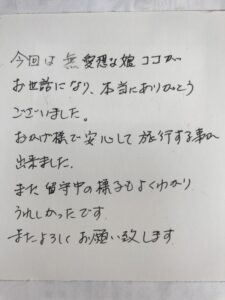 今回は無愛想な娘ココが
お世話になり、本当にありがとう
ございました。
おかげ様で安心して旅行する事が
出来ました。
また留守中の様子もよくわかり
うれしかったです
またよろしくお願い致します